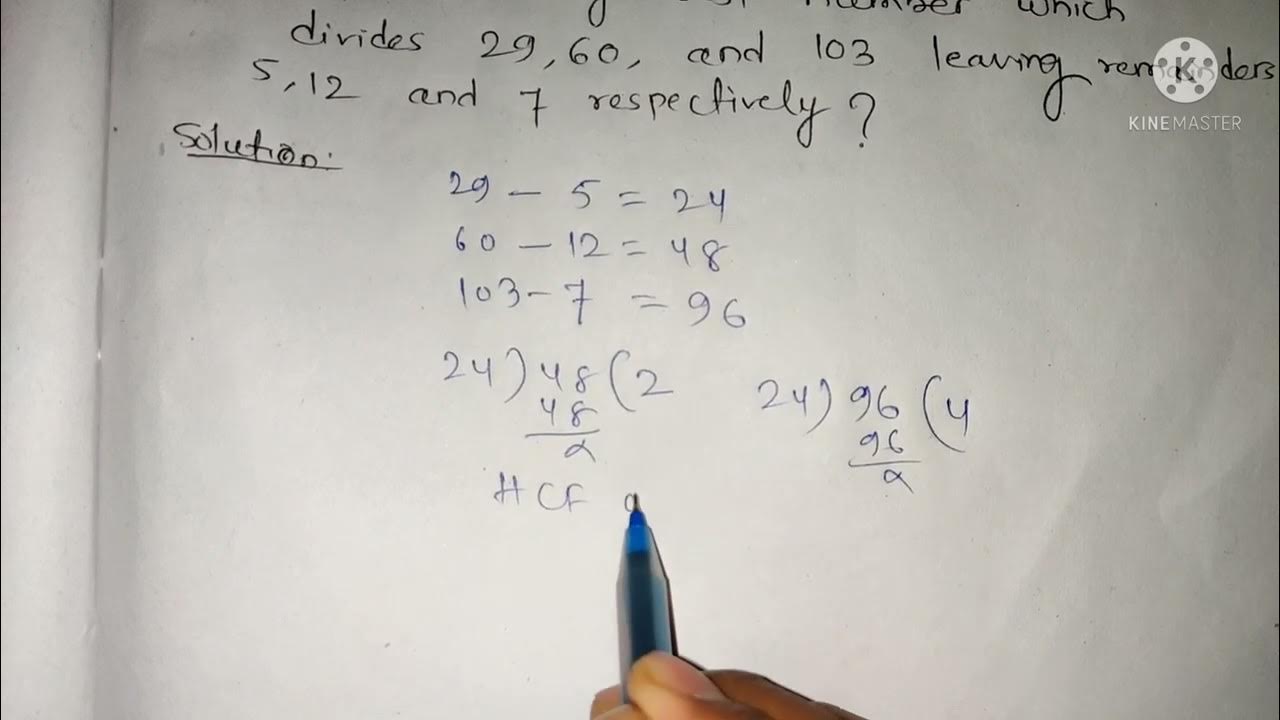 number which
divides 29, 60, and 103 leaving remainders
5, 12 and 7 respectively ?
Solution:
29 - 5 = 24
60 - 12 = 48
103 - 7 = 96
24 ) 48 ( 2
48
24 ) 96 ( 4
96
HCF
KINEMASTER